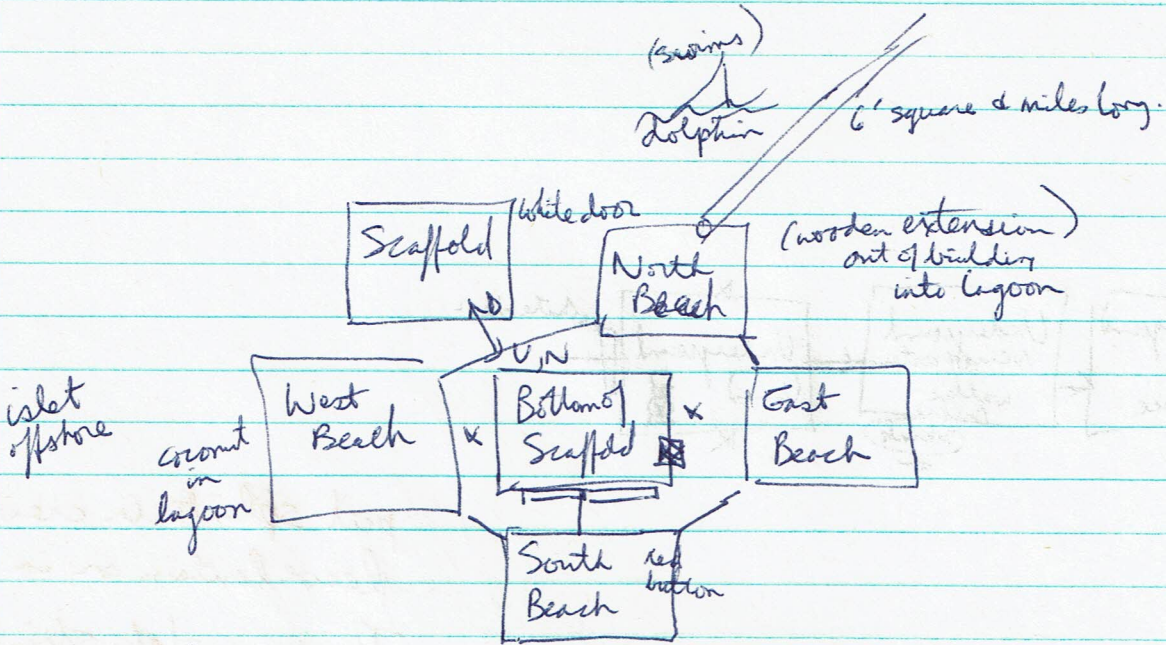 (swims)
Dolphin
6' square & miles long.
Scaffold
white door
North
Beach
(wooden extension)
out of building
into lagoon
ND
U,N
islet
offshore
coconut
in
lagoon
West
Beach
x
Bottom of
Scaffold
x
East
Beach
South
Beach
red
button